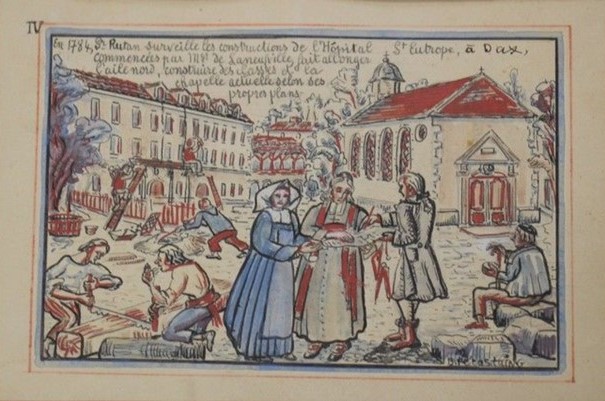 IV
En 1784, Sr Rutan surveille les constructions de l'Hôpital St Eutrope, à Dax,
commencées par Mgr de Laneufville, fait allonger
l'aile nord, construire des classes et la
chapelle actuelle selon ses
propres plans